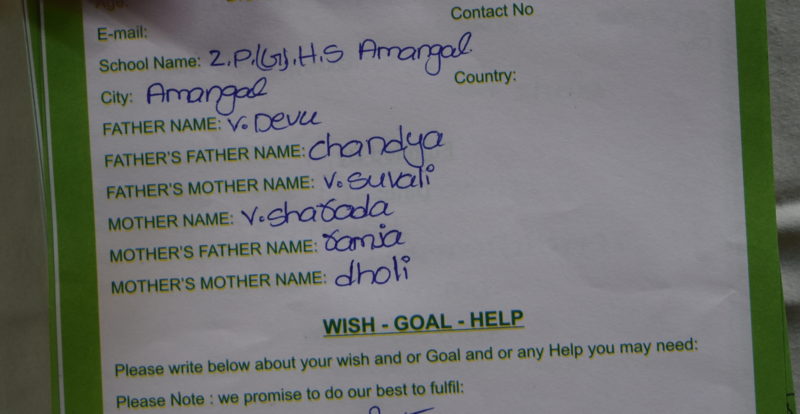 Age:
Contact No
E-mail:
School Name: Z.P.(G).H.S Amangal
City: Amangal Country:
FATHER NAME: V. Devu
FATHER'S FATHER NAME: chandya
FATHER'S MOTHER NAME: V. suvali
MOTHER NAME: V. sharada
MOTHER'S FATHER NAME: ramja
MOTHER'S MOTHER NAME: dholi
WISH - GOAL - HELP
Please write below about your wish and or Goal and or any Help you may need:
Please Note : we promise to do our best to fulfil: